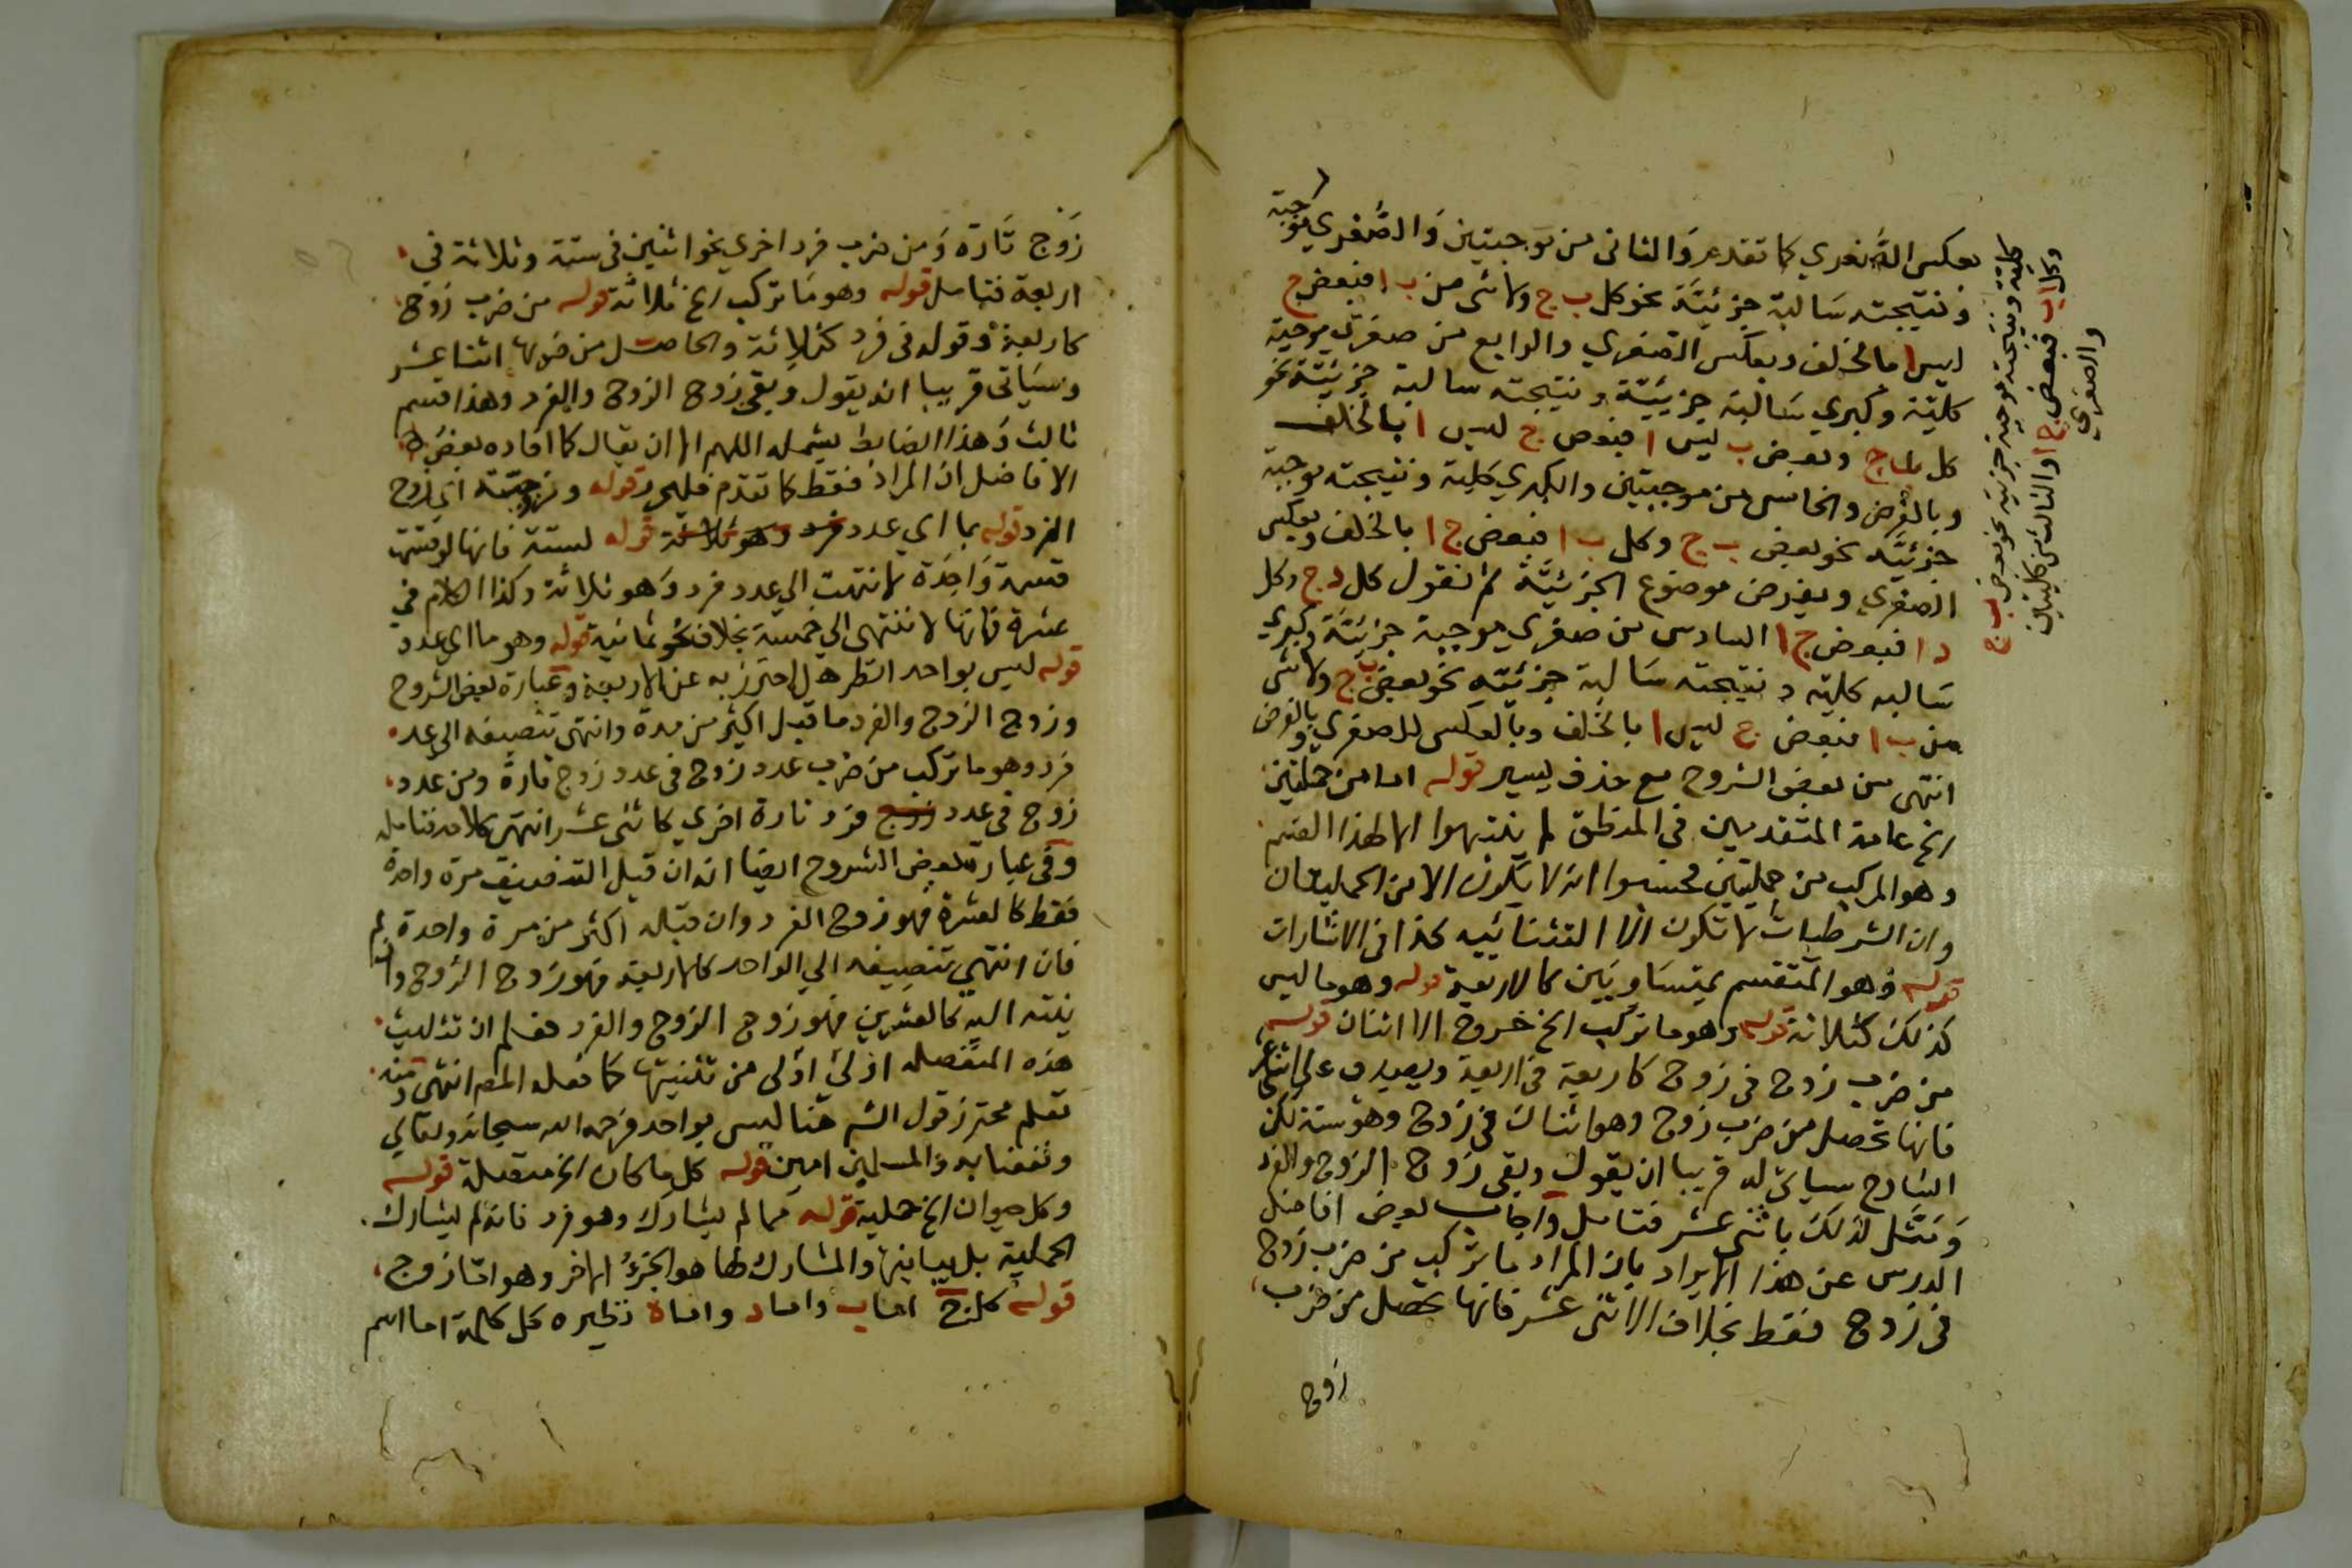 بعكس الصغرى كما تقدم والثاني من موجبتين والصغرى موجبة
ونتيجته سالبة جزئية نحو كل ب ج ولا شي من ب ا فبعض ج
ليس ا بالخلف وبعكس الصغري والرابع من صغرى موجبة
كلية وكبري سالبة جزئية ونتيجته سالبة جزئية نحو
كل ب ج وبعض ب ليس ا فبعض ج ليس ا بالخلف
وبالفرض والخامس من موجبتين والكبري كلية ونتيجته موجبة
جزئية نحو بعض ب ج وكل ب ا فبعض ج ا بالخلف وبعكس
الصغري وبفرض موضوع الجزئية ثم نقول كل د ج وكل
د ا فبعض ج ا السادس من صغري موجبة جزئية وكبري
سالبه كليه ونتيجته سالبة جزئيه نحو بعض ب ج ولا شي
من ب ا فبعض ج ليس ا بالخلف وبالعكس للصغري وبالفرض
انتهى من بعض الشروح مع حذف يسير قوله اما من حمليتين
الخ عامة المتقدمين في المنطق لم ينتبهوا الا لهذا القسم
وهو المركب من حمليتين فحسبوا انه لا يكون الا من الحمليات
وان الشرطيات لا تكون الا استثنائيه كذا في الاشارات
قوله وهو المنقسم بمتساويين كالاربعة قوله وهو ما ليس
كذلك كثلاثة قوله وهو ما تركب الخ خروج الاثنان قوله
من ضرب زوج في زوج كاربعة في اربعة ويصدق على اثني عشر
فانها تحصل من ضرب زوج وهو اثنان في زوج وهو ستة لكن
الشارح سياتي له قريبا ان يقول وبقي زوج الزوج والفرد
ومثل لذلك باثني عشر فتامل واجاب بعض افاضل
الدرس عن هذا الايراد بان المراد ما تركب من ضرب زوج
في زوج فقط بخلاف الاثني عشر فانها تحصل من ضرب
زوج
كلية ونتيجته موجبة جزئية نحو بعض ب ج
وكل ب ا فبعض ج ا والثالث من كليتين
والصغري
زوج تارة ومن ضرب فرد اخري نحو اثنين في ستة وثلاثة في
اربعة فتامل قوله وهو ما تركب الخ ثلاثة قوله من ضرب زوج
كاربعة وقوله في فرد كثلاثة والحاصل من ضربها اثنا عشر
وسياتى قريبا انه يقول وبقي زوج الزوج والفرد وهذا قسم
ثالث وهذا الضابط يشمله اللهم الا ان يقال كما افاده بعض
الافاضل ان المراد فقط كما تقدم قوله وزوجية اي زوج
الفرد قوله بما اي عدد فرد وهو ثلاثة قوله لستة فانها لو قسمتها
قسمة واحدة لانتهت الي عدد فرد وهو ثلاثة وكذا الكلام في
عشرة فانها تنتهي الي خمسة بخلاف نحو ثمانية قوله وهو ما اي عدد
قوله ليس بواحد انظر هل احترز به عن الاربعة وعبارة بعض الشروح
وزوج الزوج والفرد ما قبل اكثر من مدة وانتهى تنصيفه الى عدد
فرد وهو ما تركب من ضرب عدد زوج في عدد زوج تارة ومن عدد
زوج في عدد زوج فرد تارة اخري كاثني عشر انتهى كلامه فتامله
وفي عبارة بعض الشروح ايضا انه ان قبل التنصيف مرة واحدة
فقط كالعشرة فهو زوج الفرد وان قبله اكثر من مرة واحدة
فان انتهي تنصيفه الي الواحد كالاربعة فهو زوج الزوج وان لم
ينته اليه كالعشرين فهو زوج الزوج والفرد فعلم ان تثليث
هذه المنفصله اولى من تثنيتها كما فعله المص انتهى ومنه
تعلم محترز قول الش هنا ليس بواحد فرحمه الله سبحانه وتعالي
ونفعنا به والمسلمين امين قوله كل ما كان الخ متصلة قوله
وكل حيوان الخ حملية قوله مما لم يشارك وهو فرد فانه لم يشارك
الحملية بل يباينها والمشارك لها هو الجزؤ الاخر وهو اما زوج
قوله كل ج اما ب واما د واما ه نظيره كل كلمة اما اسم